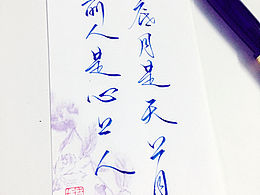 底月是天上月
前人是心上人